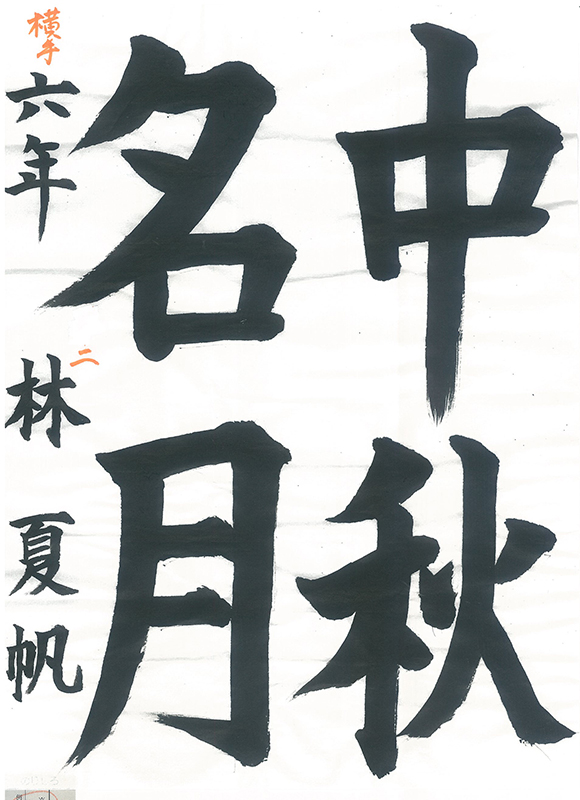 中秋
名月
横手
六年
二
林夏帆